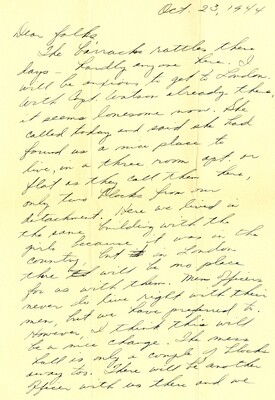 Oct. 23, 1944
Dear folks,
The barracks rattles these
days - hardly anyone here. I
will be anxious to get to London.
With Capt. Watson already there,
it seems lonesome now. She
called today and said she had
found us a nice place to
live, in a three room apt, or
flat as they call them here,
only two blocks from our
detachment. Here we lived in
the same building with the
girls because it was in the
country, but in London
there will be no place
for us with them. Men officers
never do live right with their
men, but we have preferred to.
However, I think this will
be a nice change. The mess
hall is only a couple of blocks
away too. There will be another
officer with us there and we